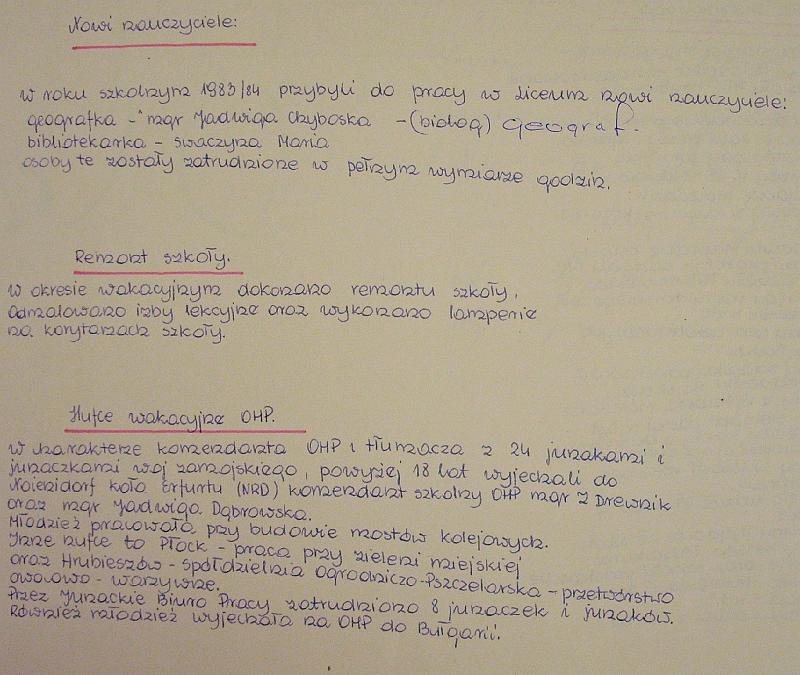 Nowi nauczyciele:
W roku szkolnym 1983/84 przybyli do pracy w Liceum nowi nauczyciele:
geografka - mgr Jadwiga Chyboska - (biolog) geograf.
bibliotekarka - Swaczyna Maria
osoby te zostały zatrudnione w pełnym wymiarze godzin.
Remont szkoły.
W okresie wakacyjnym dokonano remontu szkoły.
Odmalowano izby lekcyjne oraz wykonano lamperie
na korytarzach szkoły.
Hufce wakacyjne OHP.
W charakterze komendanta OHP i tłumacza z 24 junakami i
junaczkami woj zamojskiego, powyżej 18 lat wyjechali do
(NRD) komendant szkolny OHP mgr Z Drewnik
oraz mgr Jadwiga Dąbrowska.
Młodzież pracowała przy budowie mostów kolejowych.
Inne hufce to Płock - praca przy zieleni miejskiej
oraz Hrubieszów - Spółdzielnia Ogrodniczo-Pszczelarska - przetwórstwo
owocowo - warzywne.
Przez Junackie Biuro Pracy zatrudniono 8 junaczek i junaków.
Również młodzież wyjechała na OHP do Bułgarii.